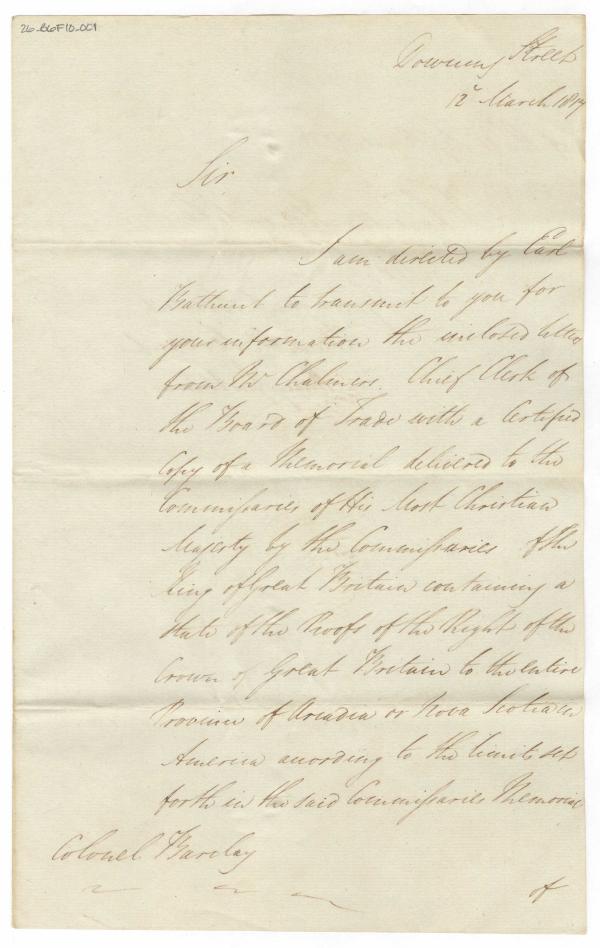 26-B6F10-001
Downing Street
12 March 1817
Sir
I am directed by Earl
Bathurst to transmit to you for
your information the inclosed letter
from Mr Chalmers. Chief Clerk of
the Board of Trade with a Certified
Copy of a Memorial delivered to the
Commissaries of His Most Christian
Majesty by the Commissaries of the
King of Great Britain containing a
state of the Proofs of the Right of the
Crown of Great Britain to the entire
Province of Arcadia or Nova Scotia in
America according to the limits set
forth in the said Commissaries Memorial
Colonel Barclay
of